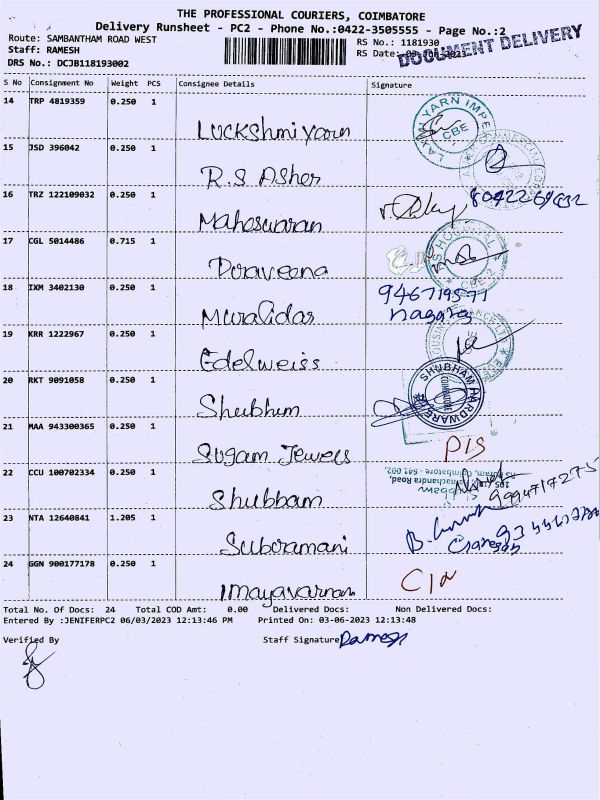 THE PROFESSIONAL COURIERS, COIMBATORE
Delivery Runsheet - PC2 - Phone No.:0422-3505555 - Page No.:2
Route: SAMBANTHAM ROAD WEST
RS No.: 1181930
Staff: RAMESH
RS Date: 03-Jun-2023
DOCUMENT DELIVERY
DRS No.: DCJB118193002
S No Consignment No Weight PCS Consignee Details Signature
14 TRP 4819359 0.250 1
Luckshmi Yarn
LAXMI YARN IMPE
CBE
15 JSD 396042 0.250 1
R.S Asher
16 TRZ 122109032 0.250 1
Maheswaran
17 CGL 5014486 0.715 1
Diraveena
CBE-2
18 IXM 3402130 0.250 1
Muralidar
946719571
nagaraj
19 KRR 1222967 0.250 1
Edelweiss
20 RKT 9091058 0.250 1
Shubhum
SHUBHAM HARDWARE
COIMBATORE
21 MAA 943300365 0.250 1
Sugam Jewels
P/S
22 CCU 100702334 0.250 1
Shubbam
9994717275
23 NTA 12640841 1.205 1
Subramani
24 GGN 900177178 0.250 1
Imayavarnan
Total No. Of Docs: 24 Total COD Amt: 0.00 Delivered Docs: Non Delivered Docs:
Entered By :JENIFERPC2 06/03/2023 12:13:46 PM Printed On: 03-06-2023 12:13:48
Verified By Staff Signature Ramesh